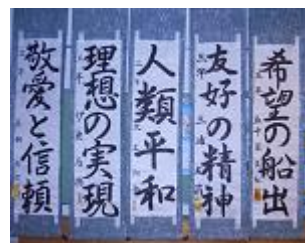 希望の船出
友好の精神
人類平和
理想の実現
敬愛と信頼